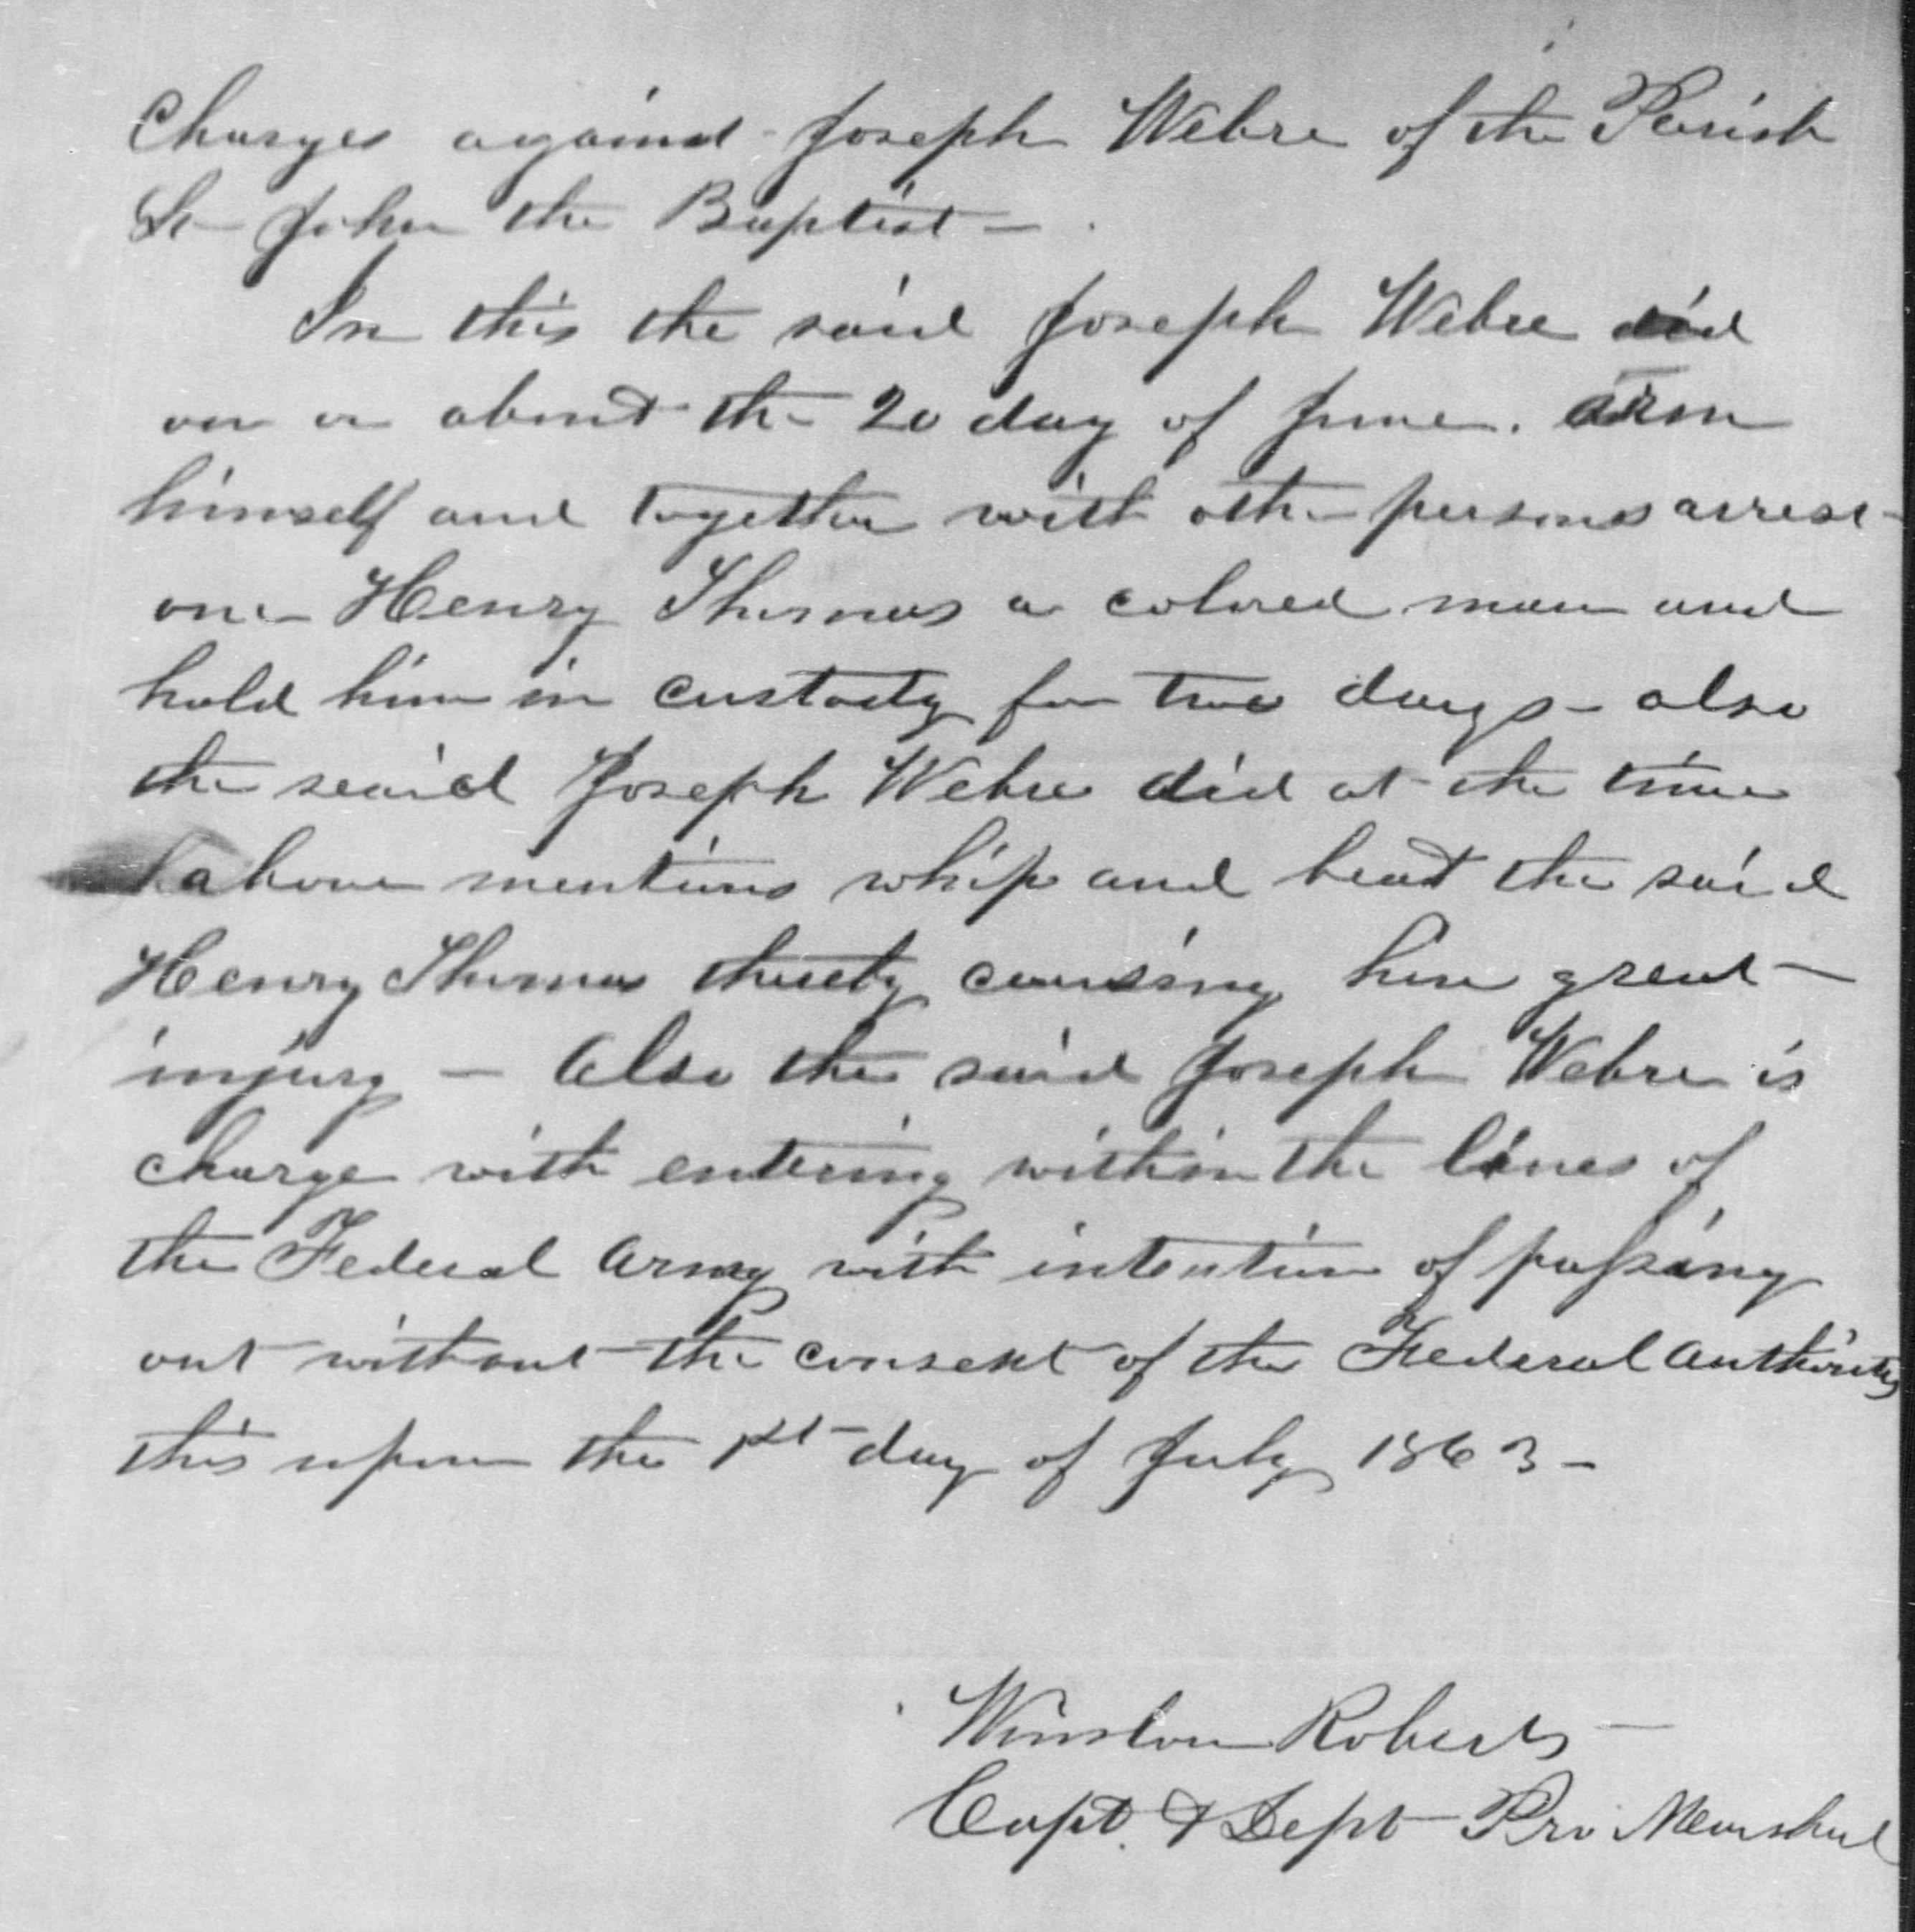 Charges against Joseph Webre of the Parish
St John the Baptist -
In this the said Joseph Webre did
on or about the 20 day of June. arm
himself and together with other persons arrest
one Henry Thomas a colored man and
hold him in custody for two days - also
the said Joseph Webre did at the time
above mentions whip and beat the said
Henry Thomas thereby causing him great
injury - Also the said Joseph Webre is
charge with entering within the lines of
the Federal Army with intention of passing
out without the consent of the Federal authority
this upon the 1st day of July 1863 -
Winslow Roberts -
Capt. & Dept Pro Marshal